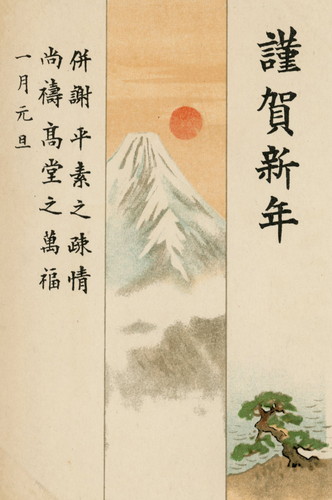 謹賀新年
併謝平素之疎情
尚禱髙堂之萬福
一月元旦